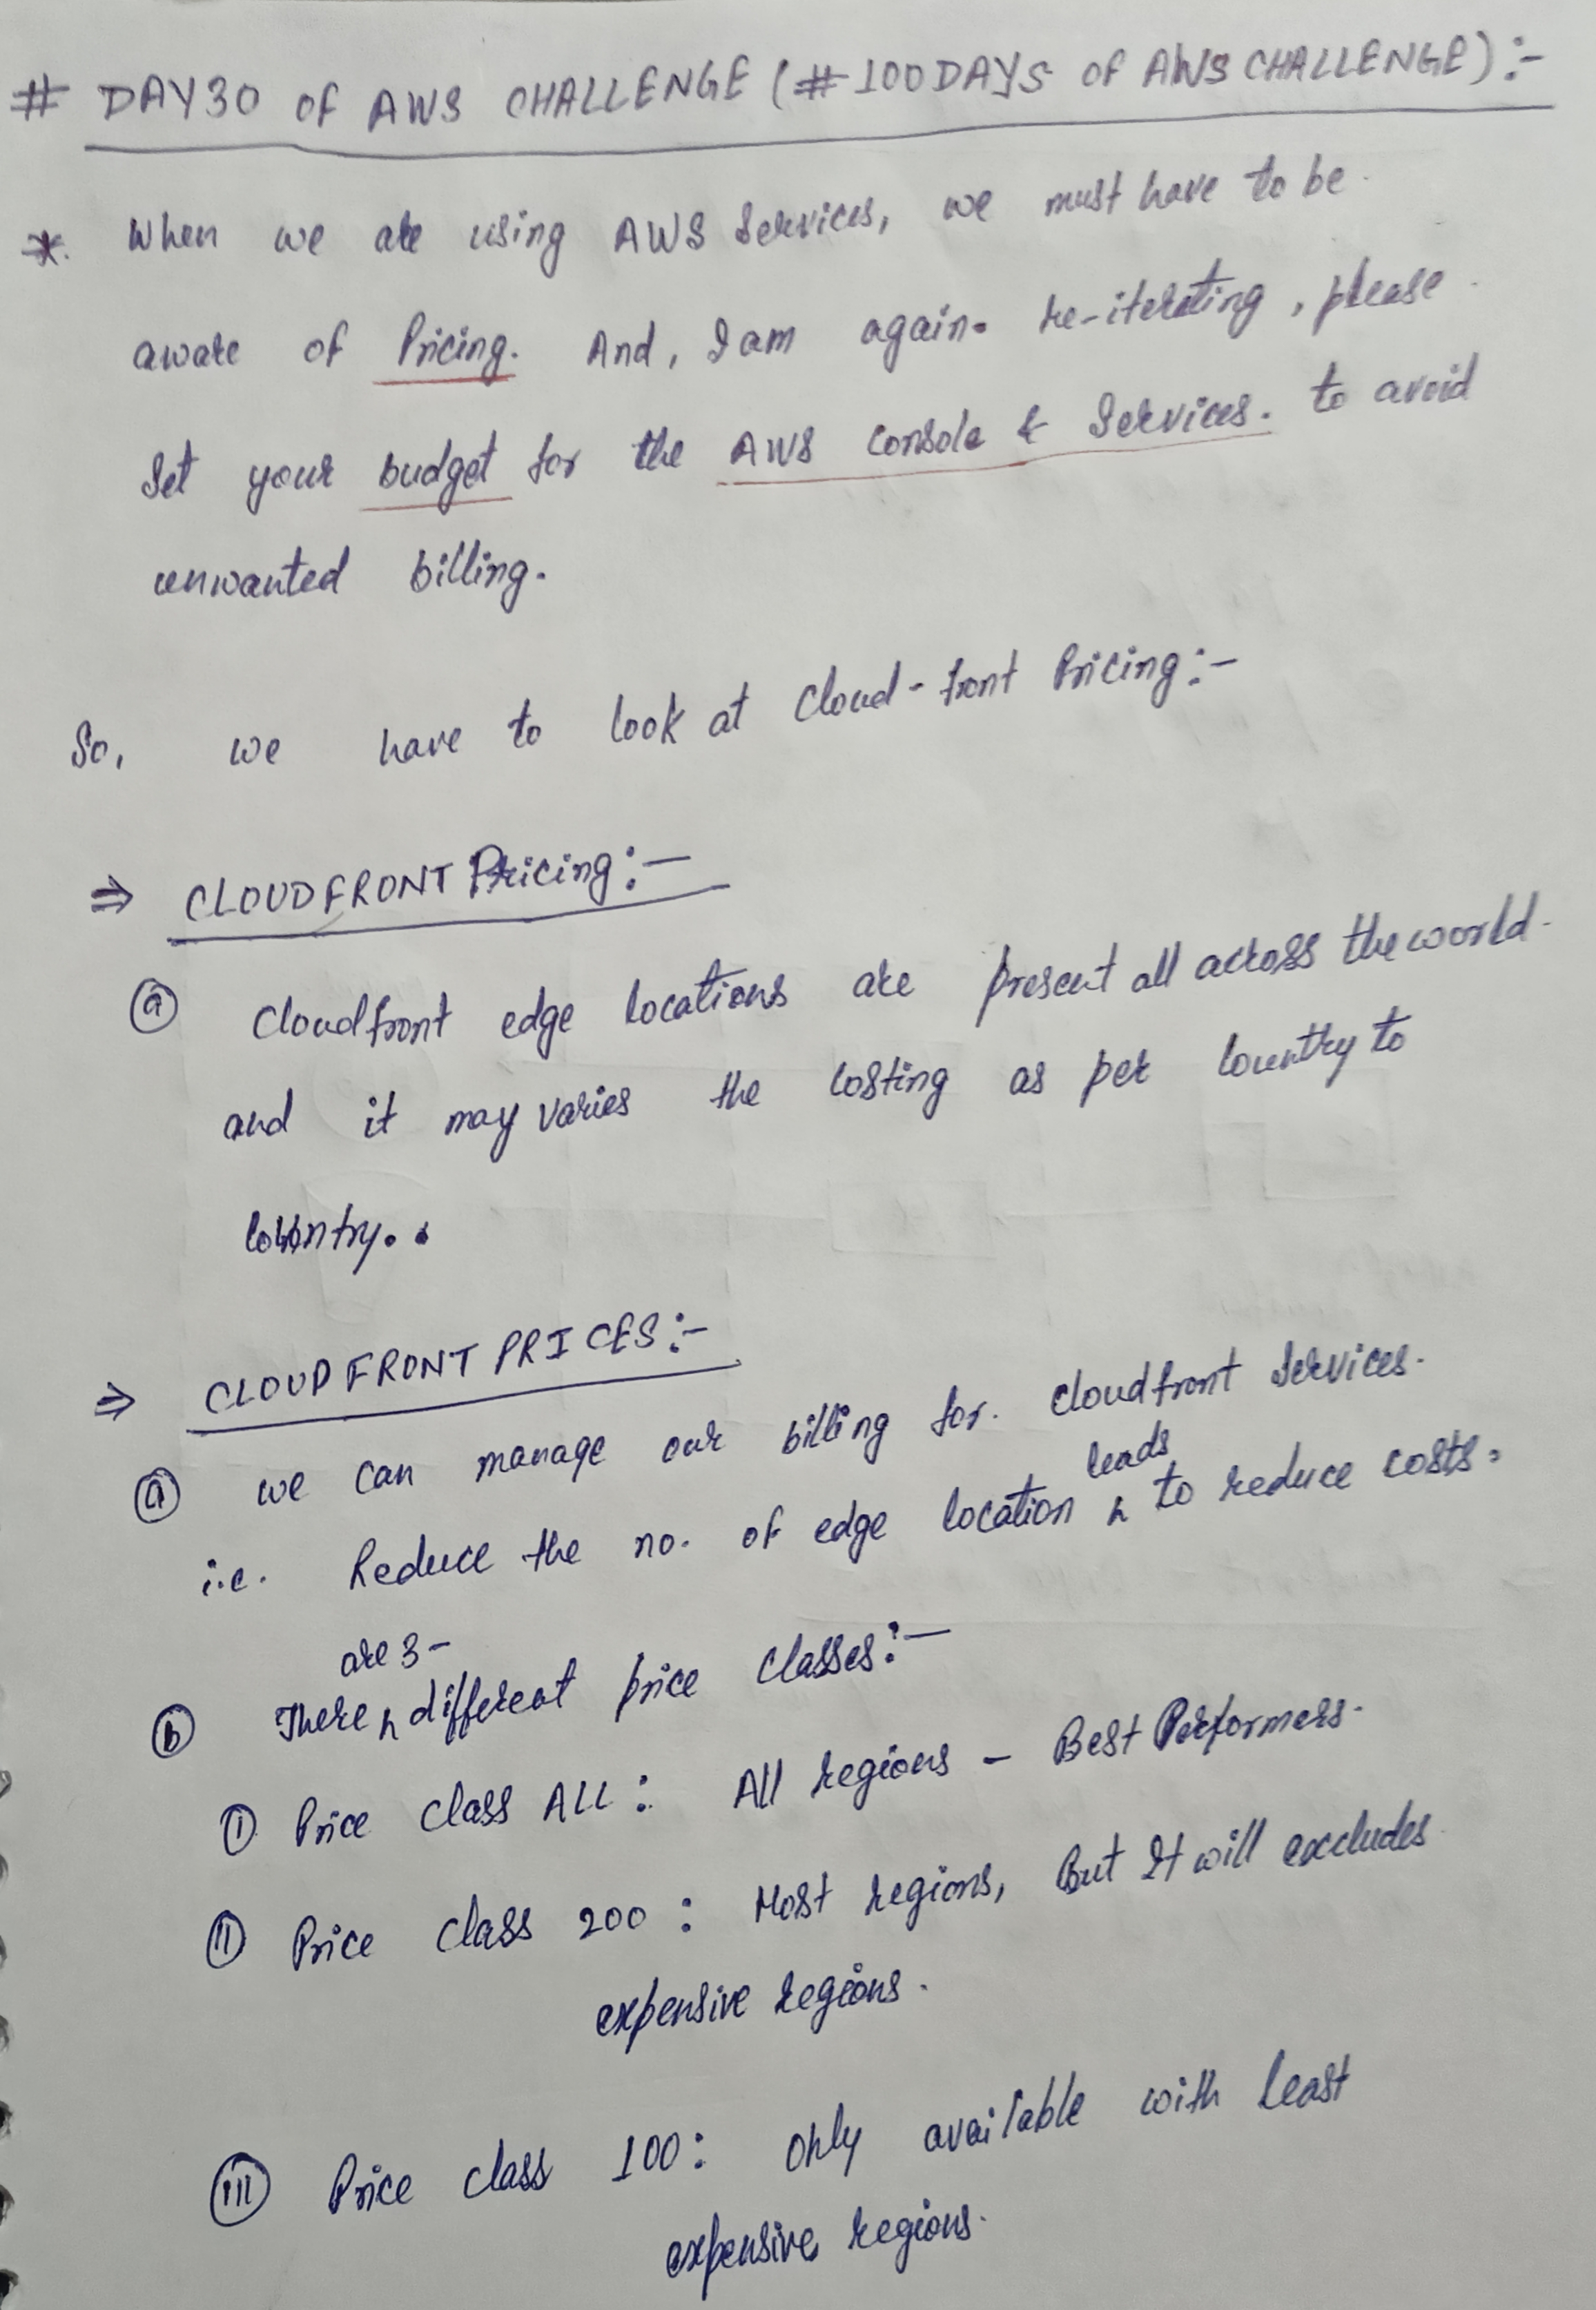 # DAY30 OF AWS CHALLENGE (#100DAYS OF AWS CHALLENGE):-
* When we are using AWS Services, we must have to be.
aware of Pricing. And, I am again. re-iterating, please.
Set your budget for the AWS Console & Services. to avoid
unwanted billing.
So, we have to look at Cloud-front Pricing:-
⇒ CLOUDFRONT Pricing:-
ⓐ Cloudfront edge locations are present all across the world.
and it may varies the costing as per country to
country..
⇒ CLOUDFRONT PRICES:-
ⓐ we can manage our billing for. cloudfront Services.
leads
i.e. Reduce the no. of edge location ^ to reduce costs.
are 3-
ⓑ There ^ different price classes:-
① Price Class ALL: All regions - Best Performers.
⑪ Price Class 200: Most regions, But It will excludes
expensive regions.
(iii) Price class 100: Only available with least
expensive regions.